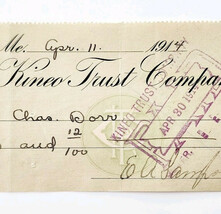 Me, Apr. 11. 1914
Kineo Trust Compa
Chas. Dorr
and 12/100
KINEO TRUST
APR 30 19
E A Samp